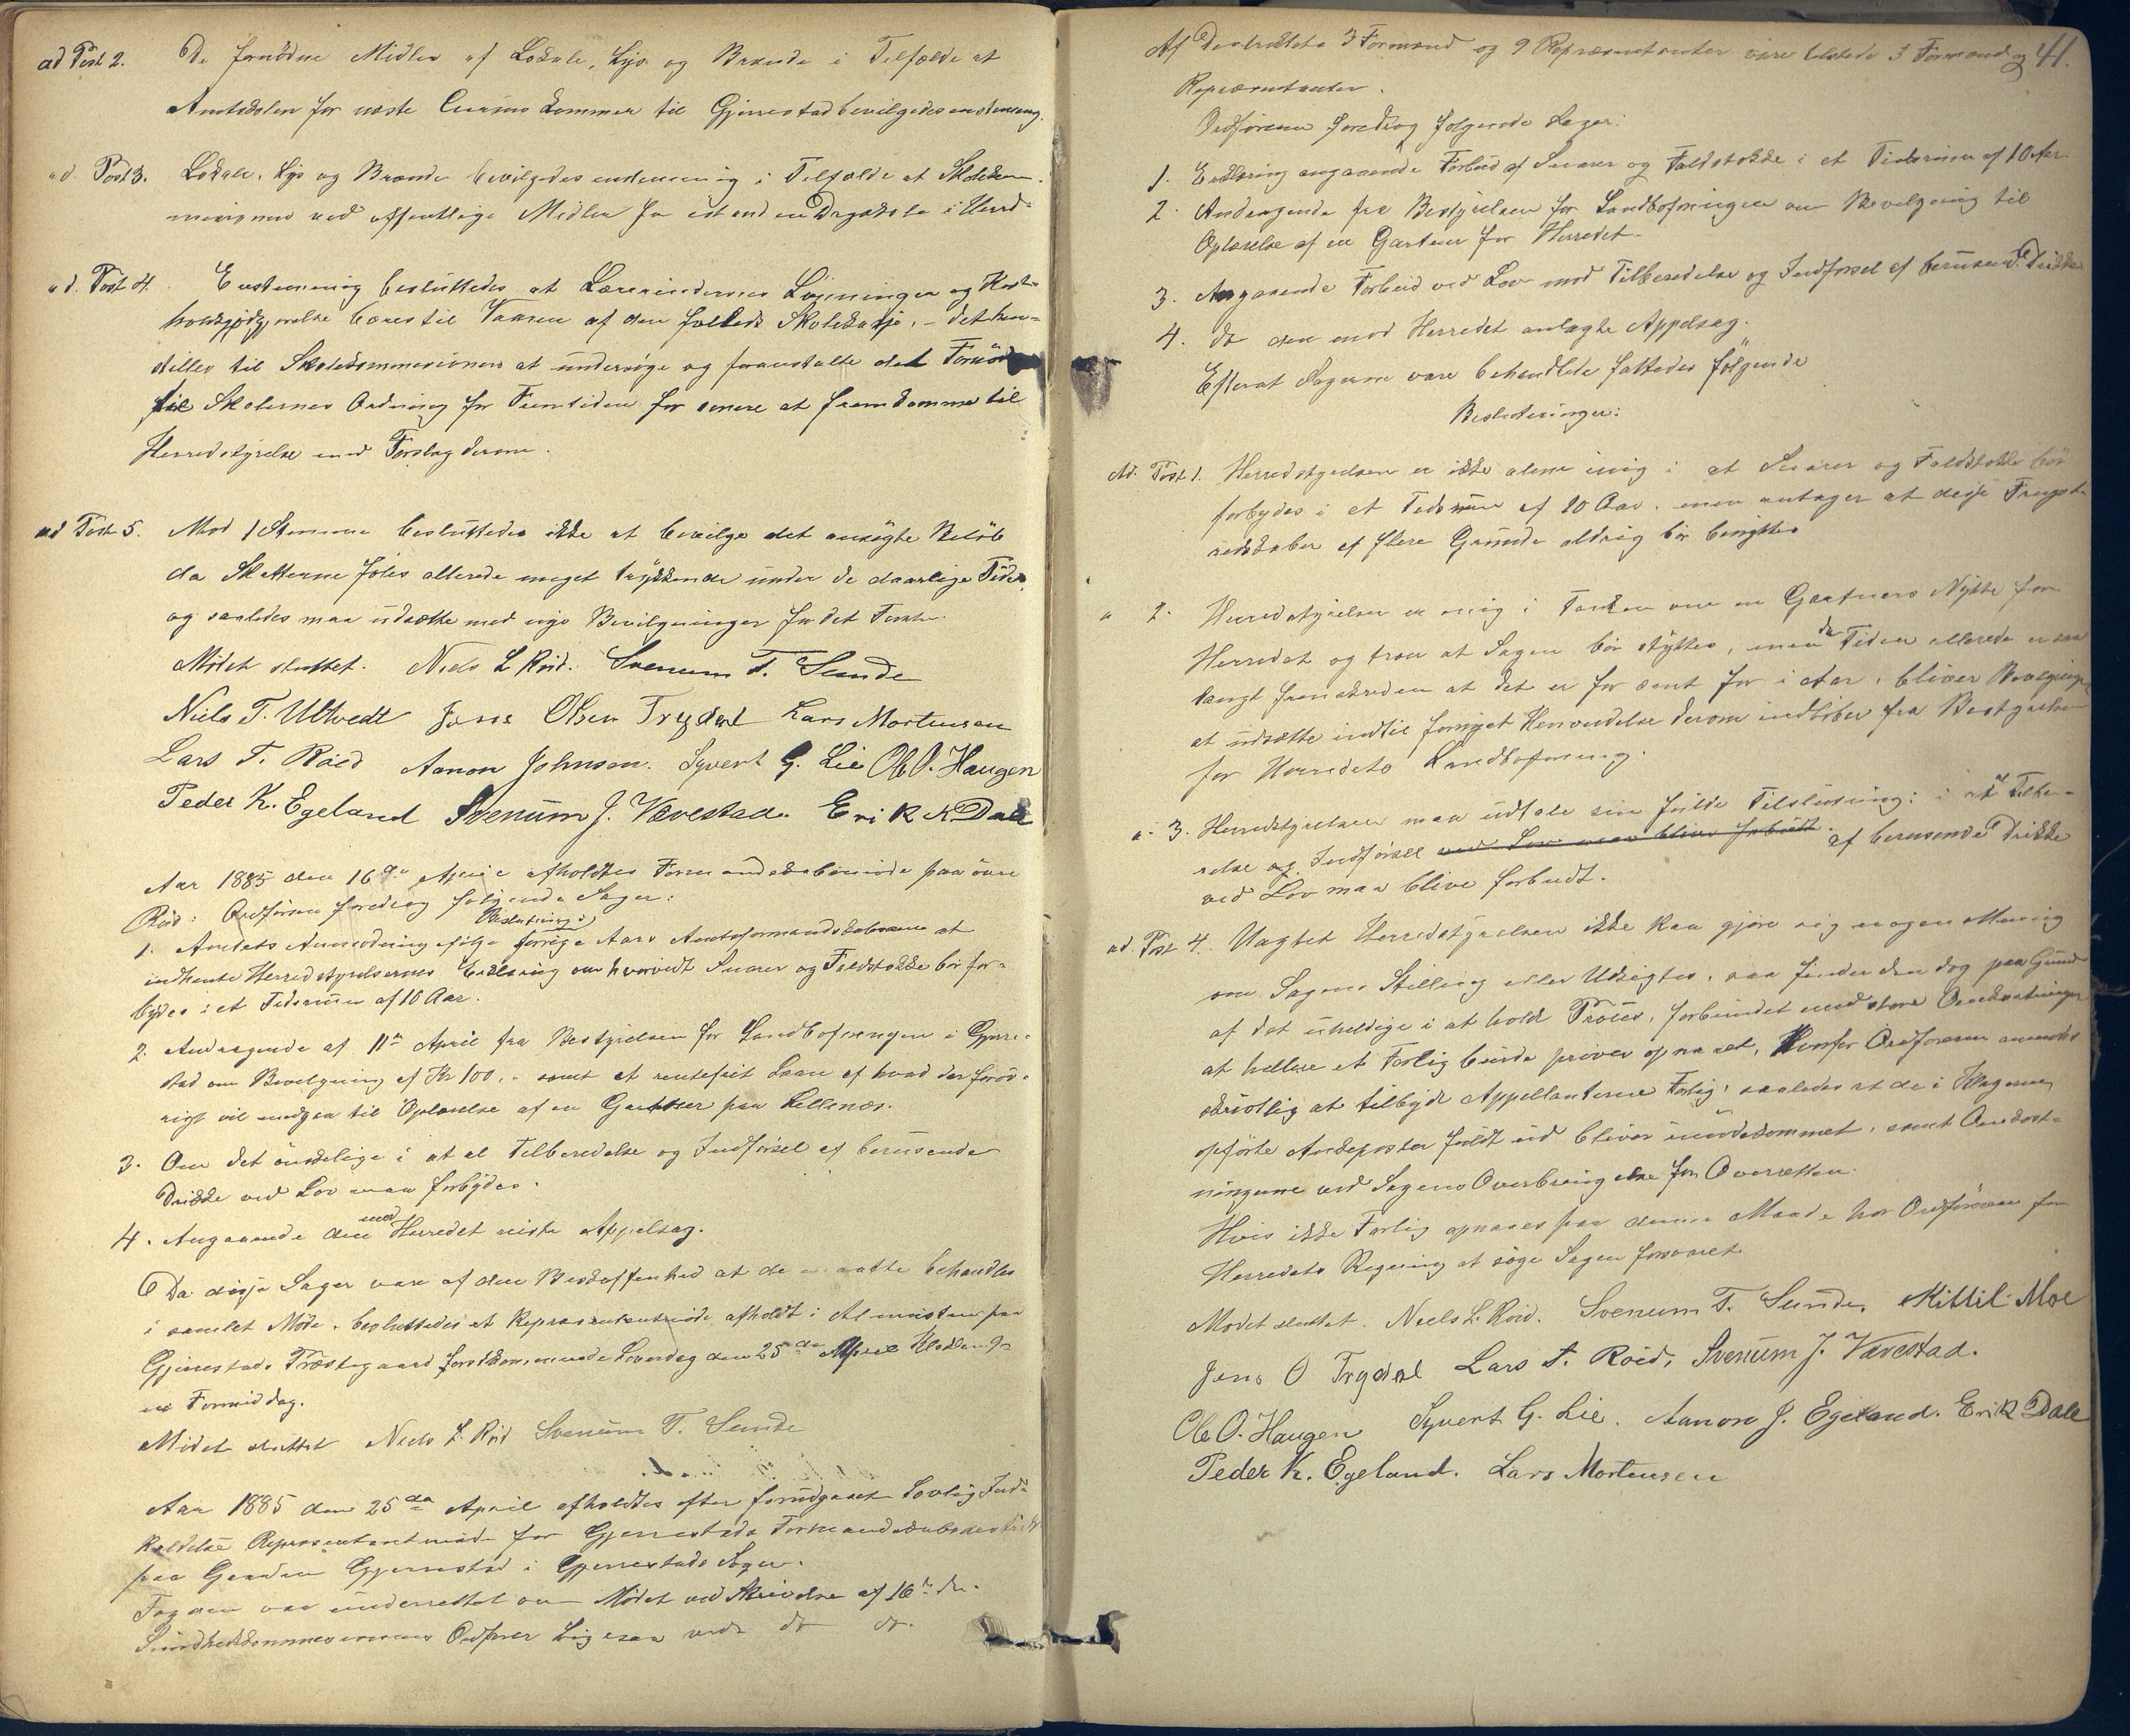 ad Post 2. De fornødne Midler af Lokale, Lys og Brænde i Tilfælde at
Amtsskolen for næste Cursus kommer til Gjerrestad bevilgedes enstemmig.
ad. Post 3. Lokale, Lys og Brænde bevilgedes enstemmig i Tilfælde at Skolekom-
missionen ved offentlige Midler faar istand en Dragskole i Herred-
ad. Post 4. Enstemmig besluttedes at Lærerindernes Lønninger og Kost-
holdsgodtgjørelse bæres til Vaaren af den fælleds Skolekasse, - det hen-
stilles til Skolekommissionen at undersøge og foranstalte det Fornødne
til Skolernes Ordning for Fremtiden for senere at fremkomme til
Herredstyrelse med Forslag derom.
ad Post 5. Mod 1 Stemme besluttedes ikke at bevilge det ansøgte Beløb
da Skatterne føles allerede meget trykkende under de daarlige Tider,
og saaledes maa udsætte med nye Bevilgninger for det Første.
Mødet sluttet. Niels L Røid. Svenum T. Sunde
Niels T. Ulltvedt Jens Olsen Trydal Lars Mortensen
Lars T. Røid Aanon Johnsen. Syvert G. Lie Ole O. Haugen
Peder K. Egeland Svenum J. Vævestad. Erik K Dale
Aar 1885 den 16de April afholdtes Formandskabsmøde paa øvre
Røid: Ordføreren foredrog følgende Sager:
1. Amtets Anmodning ifølge forrige Aars Amtsformandskabs Beslutning at
indhente Herredstyrelsernes Erklæring om hvorvidt Snarer og Faldstokke bør for-
bydes i et Tidsrum af 10 Aar.
2. Andragende af 11te April fra Bestyrelsen for Landboforeningen i Gjerre-
stad om Bevilgning af Kr 100, - samt et rentefrit Laan af hvad der forøv-
rigt vil medgaa til Oplærelse af en Gartner paa Lillenæs.
3. Om det ønskelige i at al Tilberedelse og Indførsel af berusende
Drikke ved Lov maa forbydes.
4. Angaaende den mod Herredet reiste Appelsag.
Da disse Sager vare af den Beskaffenhed at de maatte behandles
i samlet Møde, besluttedes et Repræsentantmøde afholdt i Almuestuen paa
Gjerrestads Præstegaard førstkommende Løverdag den 25de April Klokken 9
om Formiddag.
Mødet sluttet Niels L. Røid Svenum T. Sunde
Aar 1885 den 25de April afholdtes efter forudgaaet Lovlig Ind-
kaldelse Repræsentantmøde for Gjerrestads Formandskabsdistrikt
paa Gaarden Gjerrestad i Gjerrestads Sogn.
Fogden var underrettet om Mødet ved Skrivelse af 16de ds.
Sundhedskommissionens Ordfører ligesaa ved do do.
41.
Af Districtets 3 Formænd og 9 Repræsentanter vare tilstede 3 Formænd og
Repræsentanter.
Ordføreren foredrog følgende Sager:
1. Erklæring angaaende Forbud af Snarer og Faldstokke i et Tidsrum af 10 Aar.
2. Andragende fra Bestyrelsen for Landboforeningen om Bevilgning til
Oplærelse af en Gartner for Herredet.
3. Angaaende Forbud ved Lov mod Tilberedelse og Indførsel af berusende Drikke
4. do den mod Herredet anlagte Appelsag.
Efterat Sagerne vare behandlede fattedes følgende
Beslutninger:
Ad. Post 1. Herredstyrelsen er ikke alene enig i at Snarer og Faldstokke bør
forbydes i et Tidsrum af 10 Aar, men antager at disse Fangst-
redskaber af flere Grunde aldrig bør benyttes
" 2. Herredstyrelsen er enig i Tanken om en Gartners Nytte for
Herredet og tror at Sagen bør støttes, men da Tiden allerede er saa
langt fremskreden at det er for sent for i Aar, bliver Bevilgningen
at udsætte indtil fornyet Henvendelse derom indløber fra Bestyrelsen
for Herredets Landboforening.
" 3. Herredstyrelsen maa udtale sin fulde Tilslutning: i at al Tilbe-
relse og Indførsel ved Lov maa blive forbudt af berusende Drikke
ved Lov maa blive forbudt.
ad. Post 4. Uagtet Herredstyrelsen ikke kan gjøre sig nogen Mening
om Sagens Stilling eller Udsigter, saa finder den dog paa Grund
af det uheldige i at holde Proces, forbundet med store Omkostninger
at hellere et Forlig burde prøves opnaaet, hvorfor Ordføreren anmodes
skriftlig at tilbyde Appellanterne Forlig: saaledes at de i Klagerne
opførte Ankeposter fuldt ud bliver imødekommet, samt Omkost-
ningerne ved Sagens Overbringelse for Overretten.
Hvis ikke Forlig opnaaes paa denne Maade har Ordføreren for
Herredets Regning at søge Sagen forsvaret
Mødet sluttet. Niels L. Røid. Svenum T. Sunde, Kittil Moe
Jens O Trydal Lars T. Røid, Svenum J. Vævestad.
Ole O. Haugen Syvert G. Lie. Aanon J. Egeland. Erik Dale
Peder K. Egeland. Lars Mortensen